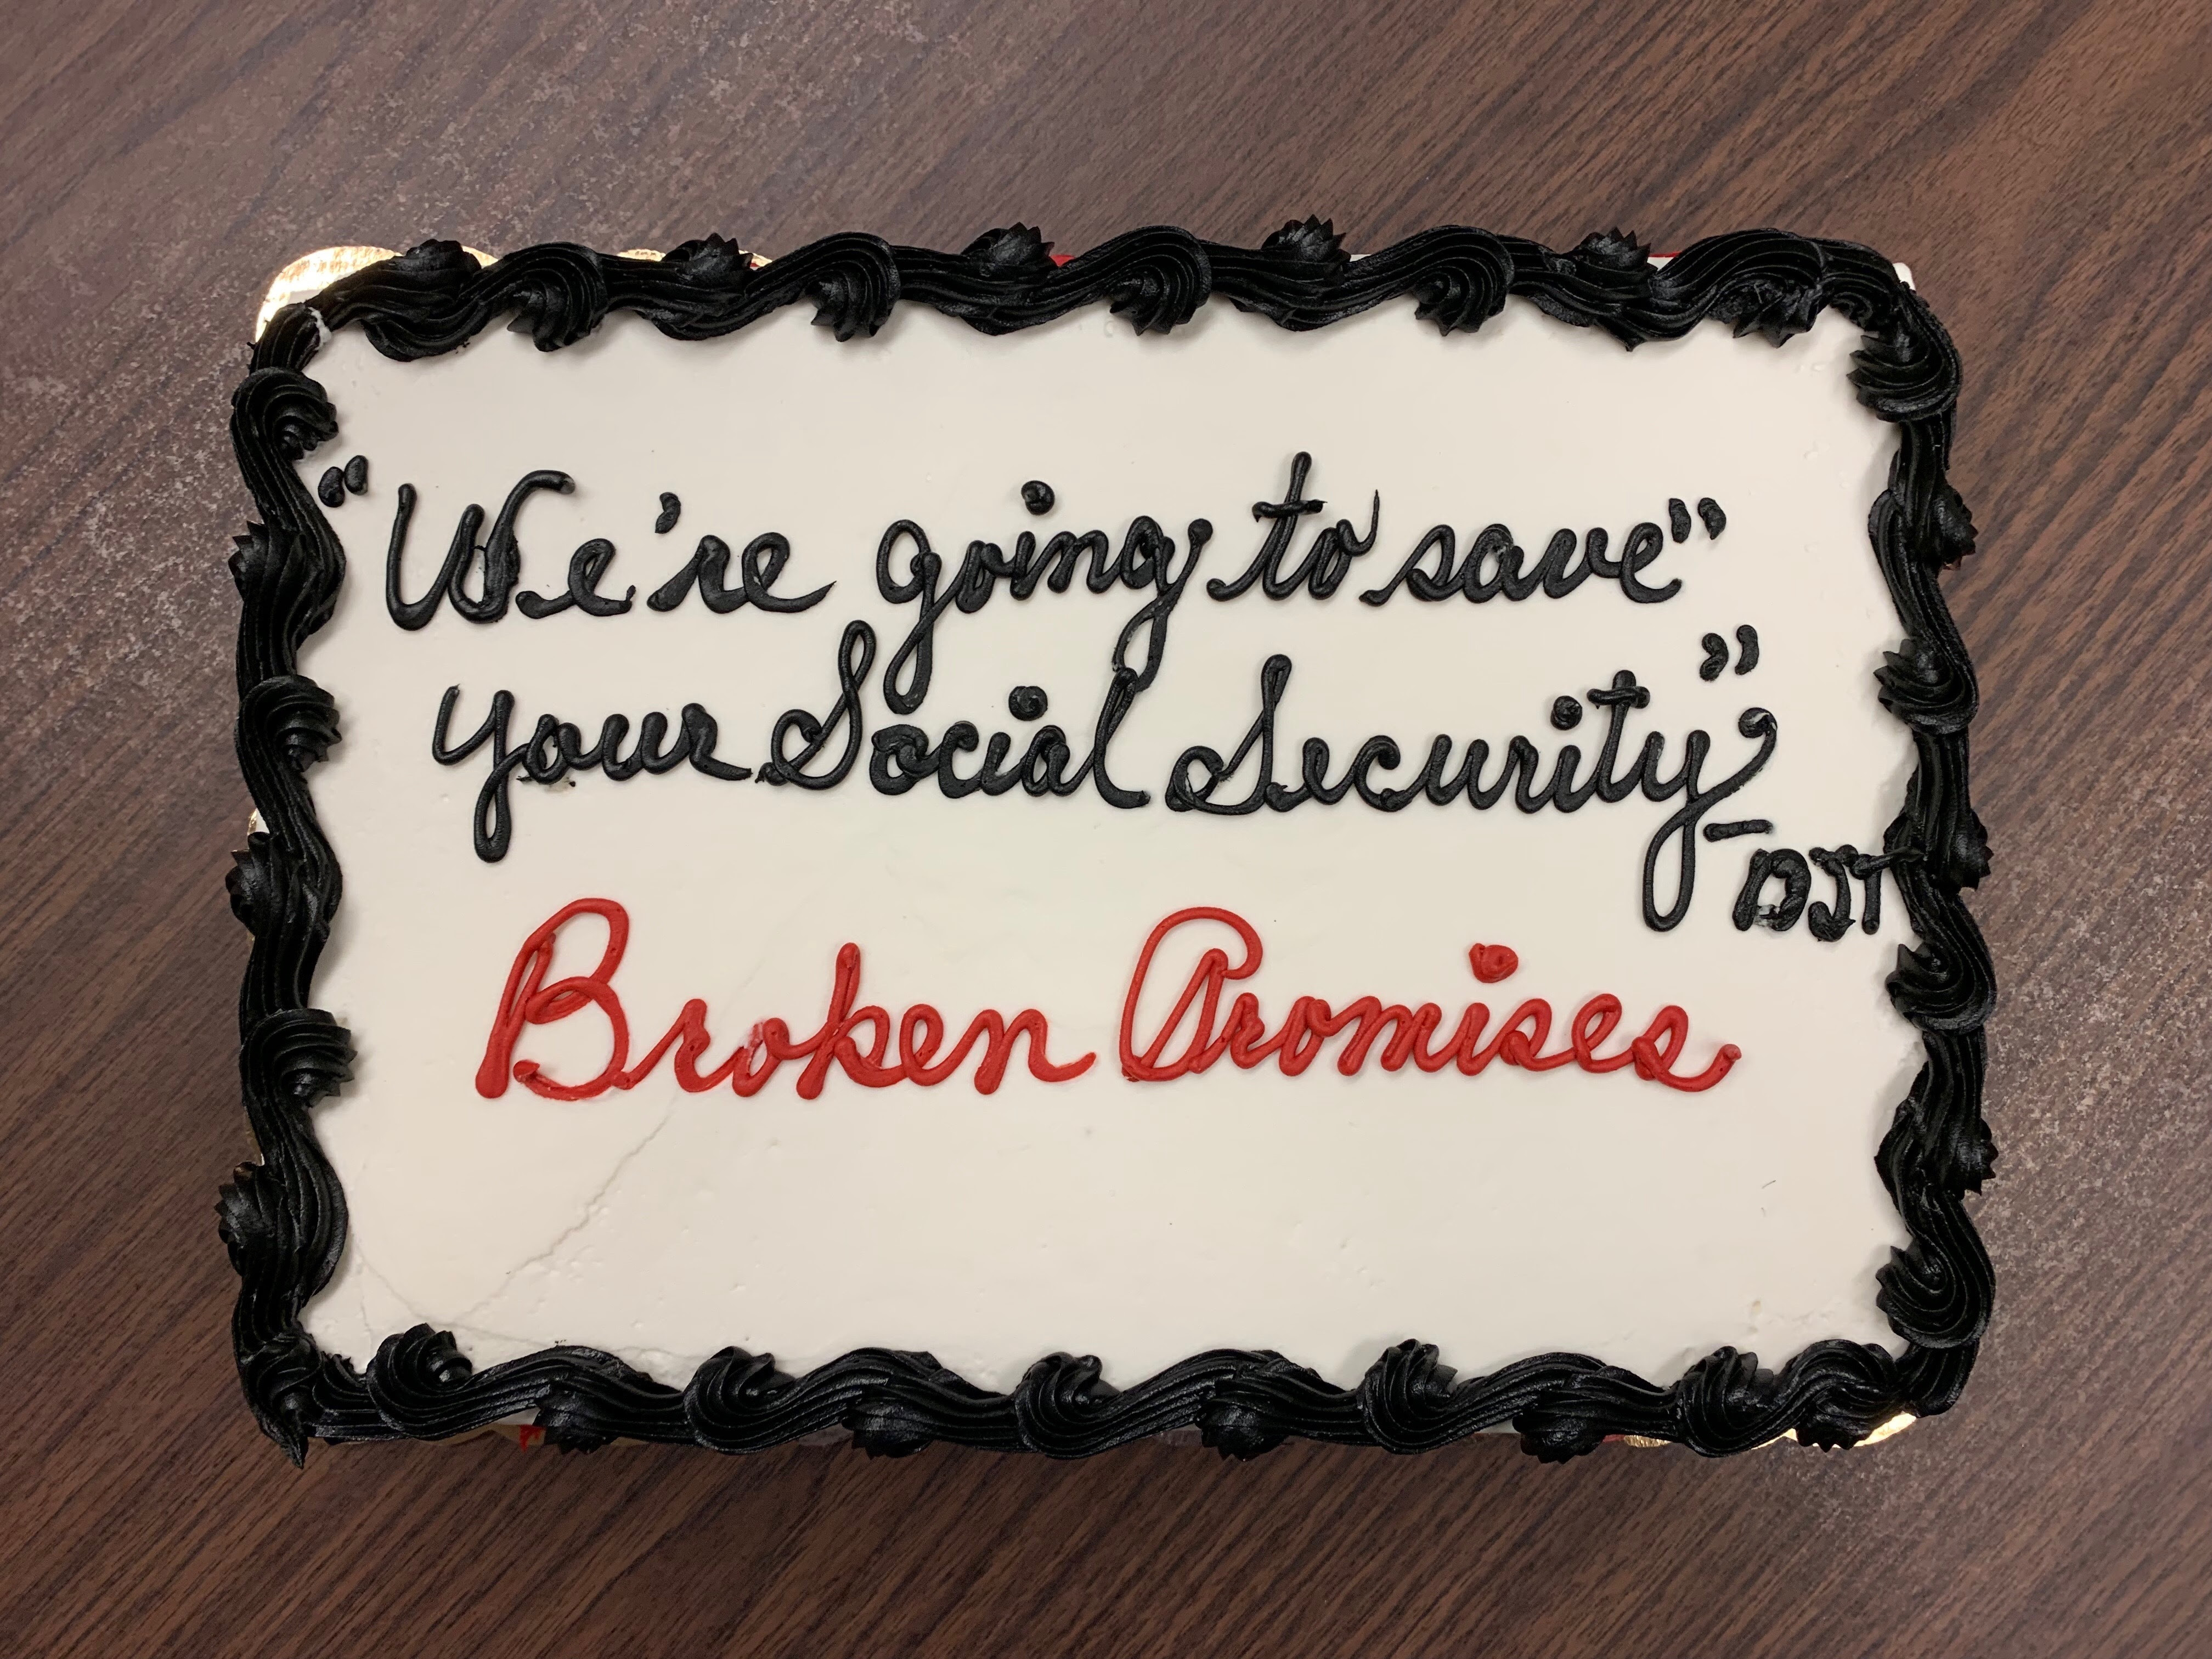 "We're going to save"
your Social Security"
-DJT
Broken Promises